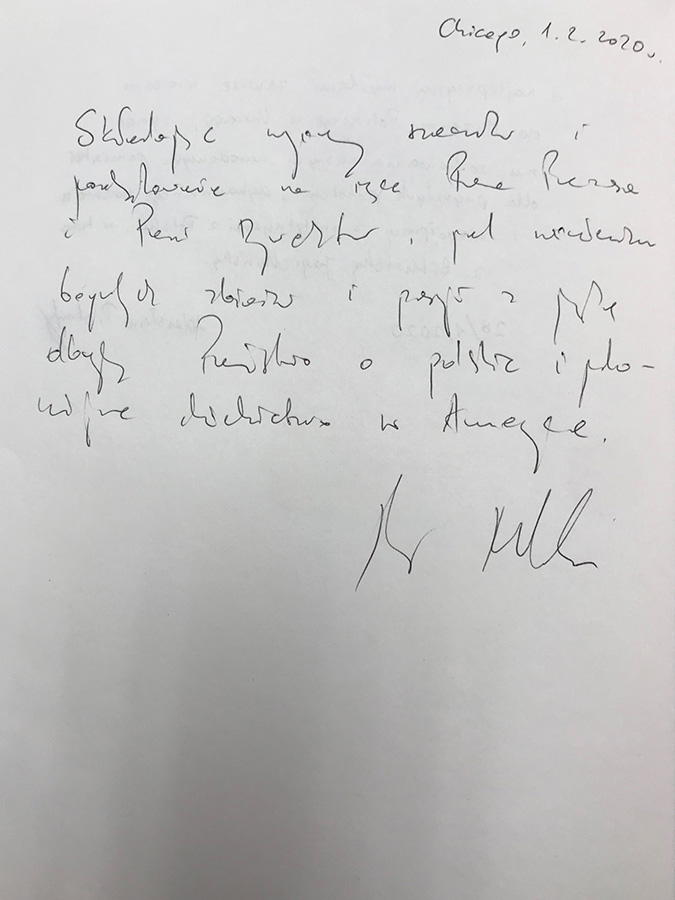 Chicago, 1.2.2020r.
Składając wyrazy szacunku i
podziękowanie na ręce Pana Prezesa
i Pani Dyrektor, pod wrażeniem
bogatych zbiorów i pasji z jaką
dbają Państwo o polskie i polo-
nijne dziedzictwo w Ameryce.